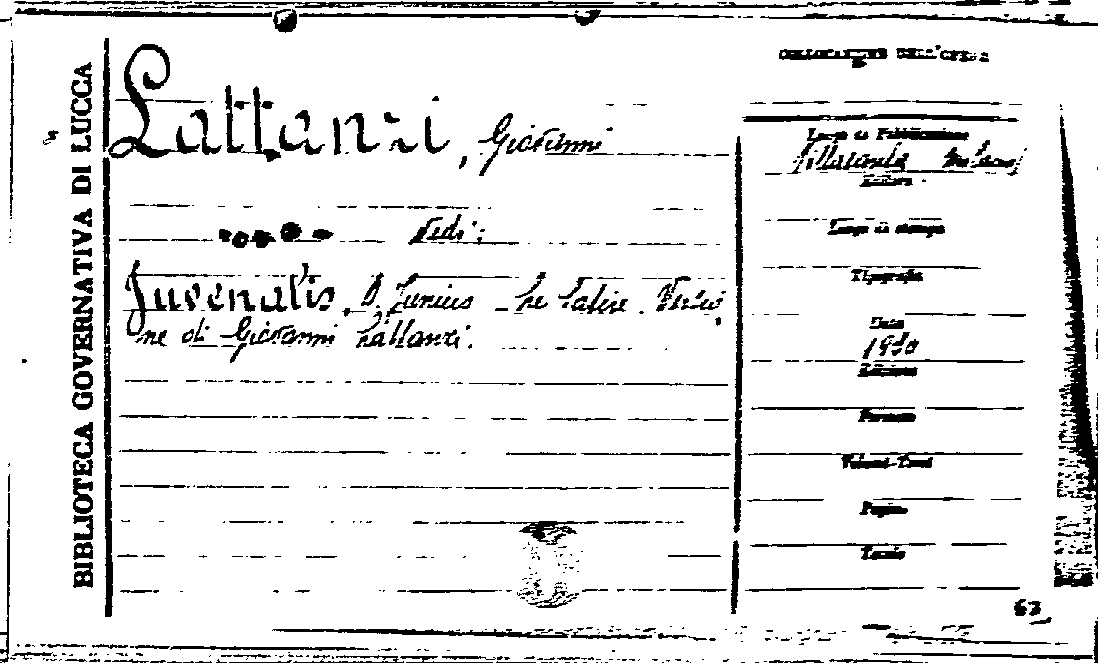 BIBLIOTECA GOVERNATIVA DI LUCCA
Lattanzi, Giovanni
Vedi:
Juvenalis, D. Junius - Le Satire. Versio
ne di Giovanni Lattanzi.
COLLOCAZIONE DELL'OPERA
Luogo di Pubblicazione
Editore
Luogo di stampa
Tipografia
Data
1930
Edizione
Formato
Volumi-Tomi
Pagine
Tavole
63